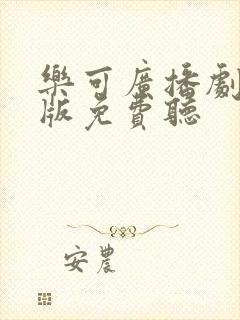 樂可廣播劇
版免費聽
安農